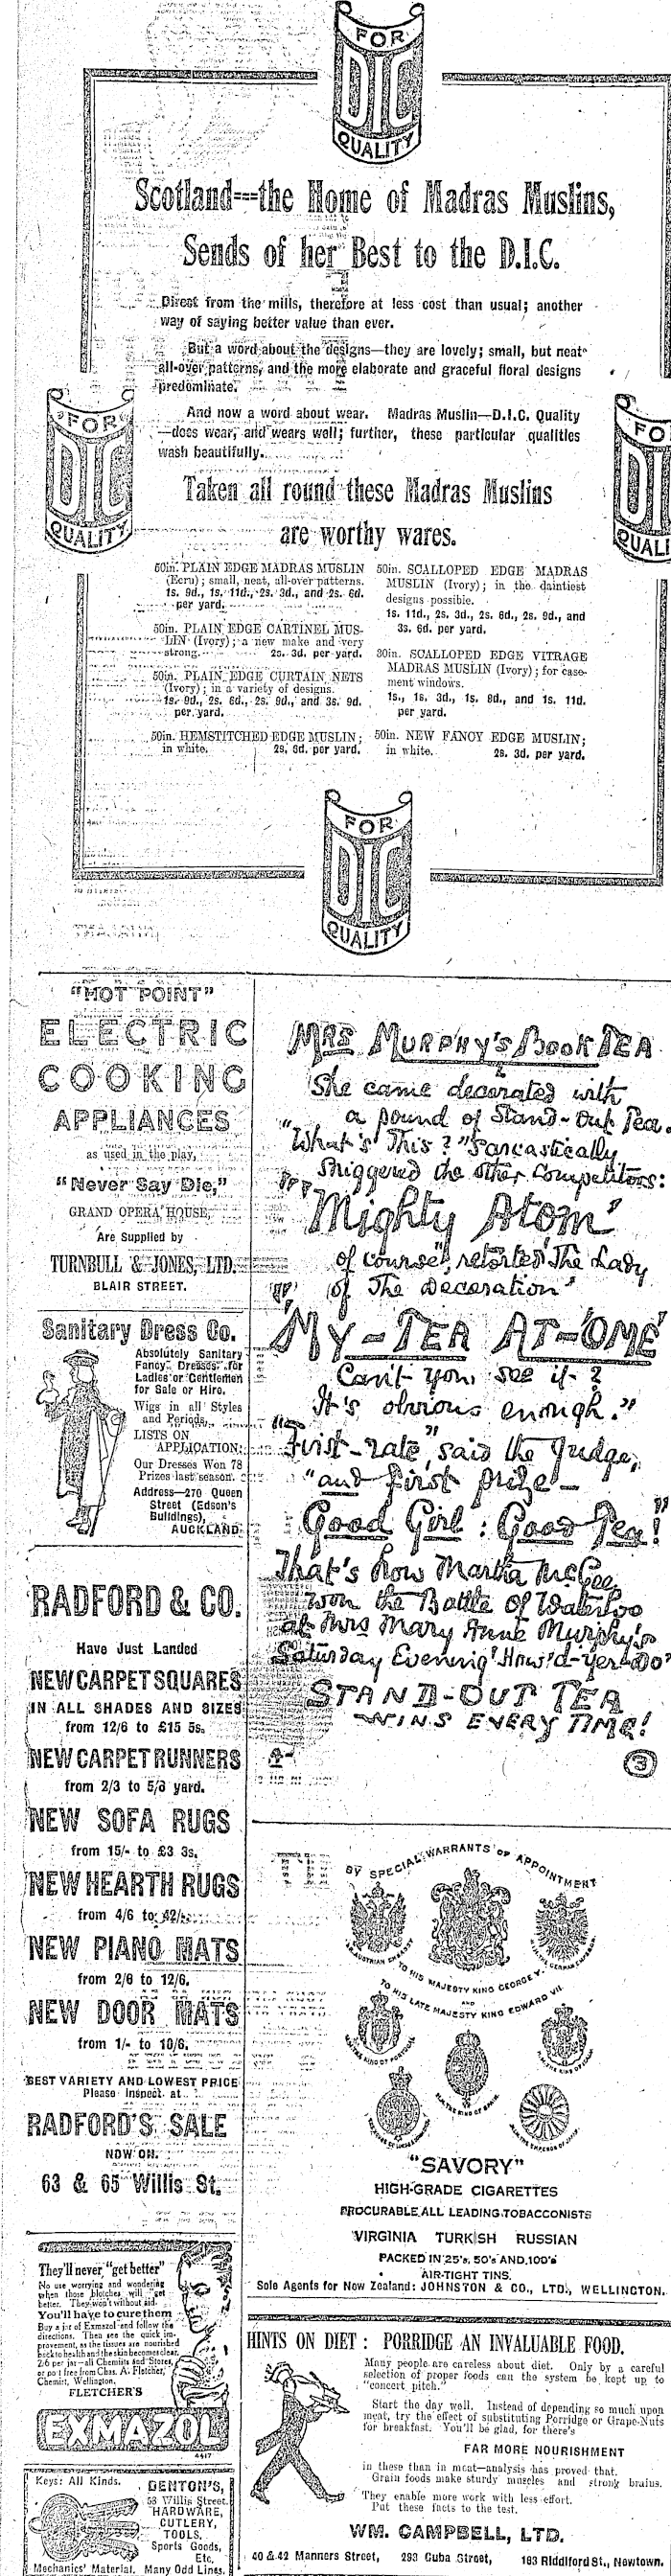 FOR
DIC
QUALITY
Scotland==the Home of Madras Muslins,
Sends of her Best to the D.I.C.
Direct from the mills, therefore at less cost than usual; another
way of saying better value than ever.
But a word about the designs—they are lovely; small, but neat
all-over patterns, and the more elaborate and graceful floral designs
predominate.
FOR
DIC
QUALITY
And now a word about wear. Madras Muslin—D.I.C. Quality
—does wear, and wears well; further, these particular qualities
wash beautifully.
FO
DI
QUALI
Taken all round these Madras Muslins
are worthy wares.
50in. PLAIN EDGE MADRAS MUSLIN
(Ecru); small, neat, all-over patterns.
1s. 9d., 1s. 11d., 2s. 3d., and 2s. 6d.
per yard.
50in. PLAIN EDGE CARTINEL MUS-
LIN (Ivory); a new make and very
strong. 2s. 3d. per yard.
50in. PLAIN EDGE CURTAIN NETS
(Ivory); in a variety of designs.
1s. 9d., 2s. 6d., 2s. 9d., and 3s. 9d.
per yard.
50in. HEMSTITCHED EDGE MUSLIN;
in white. 2s. 6d. per yard.
50in. SCALLOPED EDGE MADRAS
MUSLIN (Ivory); in the daintiest
designs possible.
1s. 11d., 2s. 3d., 2s. 6d., 2s. 9d., and
3s. 6d. per yard.
30in. SCALLOPED EDGE VITRAGE
MADRAS MUSLIN (Ivory); for case-
ment windows.
1s., 1s. 3d., 1s. 8d., and 1s. 11d.
per yard.
50in. NEW FANCY EDGE MUSLIN;
in white. 2s. 3d. per yard.
FOR
DIC
QUALITY
"HOT POINT"
ELECTRIC
COOKING
APPLIANCES
as used in the play,
"Never Say Die,"
GRAND OPERA HOUSE,
Are Supplied by
TURNBULL & JONES, LTD.
BLAIR STREET.
Sanitary Dress Co.
Absolutely Sanitary
Fancy Dresses for
Ladies or Gentlemen
for Sale or Hire.
Wigs in all Styles
and Periods.
LISTS ON
APPLICATION.
Our Dresses Won 78
Prizes last season.
Address—270 Queen
Street (Edson's
Buildings),
AUCKLAND.
RADFORD & CO.
Have Just Landed
NEW CARPET SQUARES
IN ALL SHADES AND SIZES
from 12/6 to £15 5s.
NEW CARPET RUNNERS
from 2/3 to 5/6 yard.
NEW SOFA RUGS
from 15/- to £3 3s.
NEW HEARTH RUGS
from 4/6 to 42/-
NEW PIANO MATS
from 2/6 to 12/6.
NEW DOOR MATS
from 1/- to 10/6.
BEST VARIETY AND LOWEST PRICE
Please Inspect at
RADFORD'S SALE
NOW ON.
63 & 65 Willis St.
They'll never "get better"
No use worrying and wondering
when those blotches will get
better. They won't without aid.
You'll have to cure them
Buy a jar of Exmazol and follow the
directions. Then see the quick im-
provement, as the tissues are nourished
back to health and the skin becomes clear.
2/6 per jar—all Chemists and Stores,
or post free from Chas. A. Fletcher,
Chemist, Wellington.
FLETCHER'S
EXMAZOL
4417
Keys: All Kinds.
DENTON'S,
58 Willis Street.
HARDWARE,
CUTLERY,
TOOLS,
Sports Goods,
Etc.
Mechanics' Material. Many Odd Lines.
MRS MURPHY'S BOOK TEA
She came decorated with
a pound of Stand-Out Tea.
"What's This?" Sarcastically
Sniggered the other Competitors:
"Mighty Atom"
of course", retorted The Lady
of The Decoration"
"MY-TEA AT-'OME'
Can't you see it?
It's obvious enough."
"First-rate," said the Judge,
"and first prize—
Good Girl: Good Tea!"
That's how Martha McGee
won the Battle of Waterloo
at Mrs Mary Anne Murphy's
Saturday Evening "How'd-yer-Do"
STAND-OUT TEA
WINS EVERY TIME!
3
BY SPECIAL WARRANTS OF APPOINTMENT
TO HIS MAJESTY KING GEORGE V.
AND
TO HIS LATE MAJESTY KING EDWARD VII.
"SAVORY"
HIGH-GRADE CIGARETTES
PROCURABLE ALL LEADING TOBACCONISTS
VIRGINIA TURKISH RUSSIAN
PACKED IN 25's, 50's AND 100's
AIR-TIGHT TINS.
Sole Agents for New Zealand: JOHNSTON & CO., LTD., WELLINGTON.
HINTS ON DIET: PORRIDGE AN INVALUABLE FOOD.
Many people are careless about diet. Only by a careful
selection of proper foods can the system be kept up to
"concert pitch."
Start the day well. Instead of depending so much upon
meat, try the effect of substituting Porridge or Grape-Nuts
for breakfast. You'll be glad, for there's
FAR MORE NOURISHMENT
in these than in meat—analysis has proved that.
Grain foods make sturdy muscles and strong brains.
They enable more work with less effort.
Put these facts to the test.
WM. CAMPBELL, LTD.
40 & 42 Manners Street, 293 Cuba Street, 183 Riddiford St., Newtown.